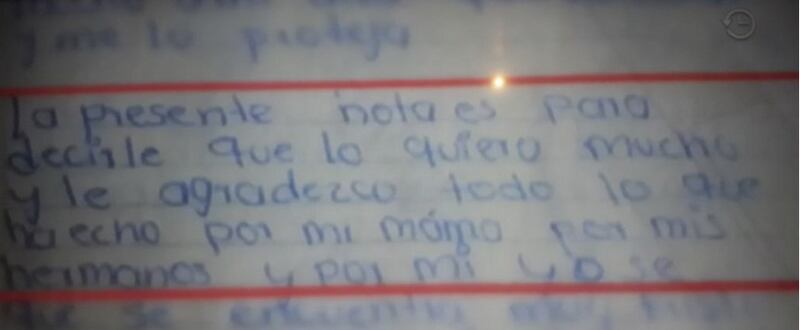 y me lo proteja
la presente nota es para
decirle que lo quiero mucho
y le agradezco todo lo que
ha echo por mi mama por mis
hermanos y por mi yo se
que se encuentra muy